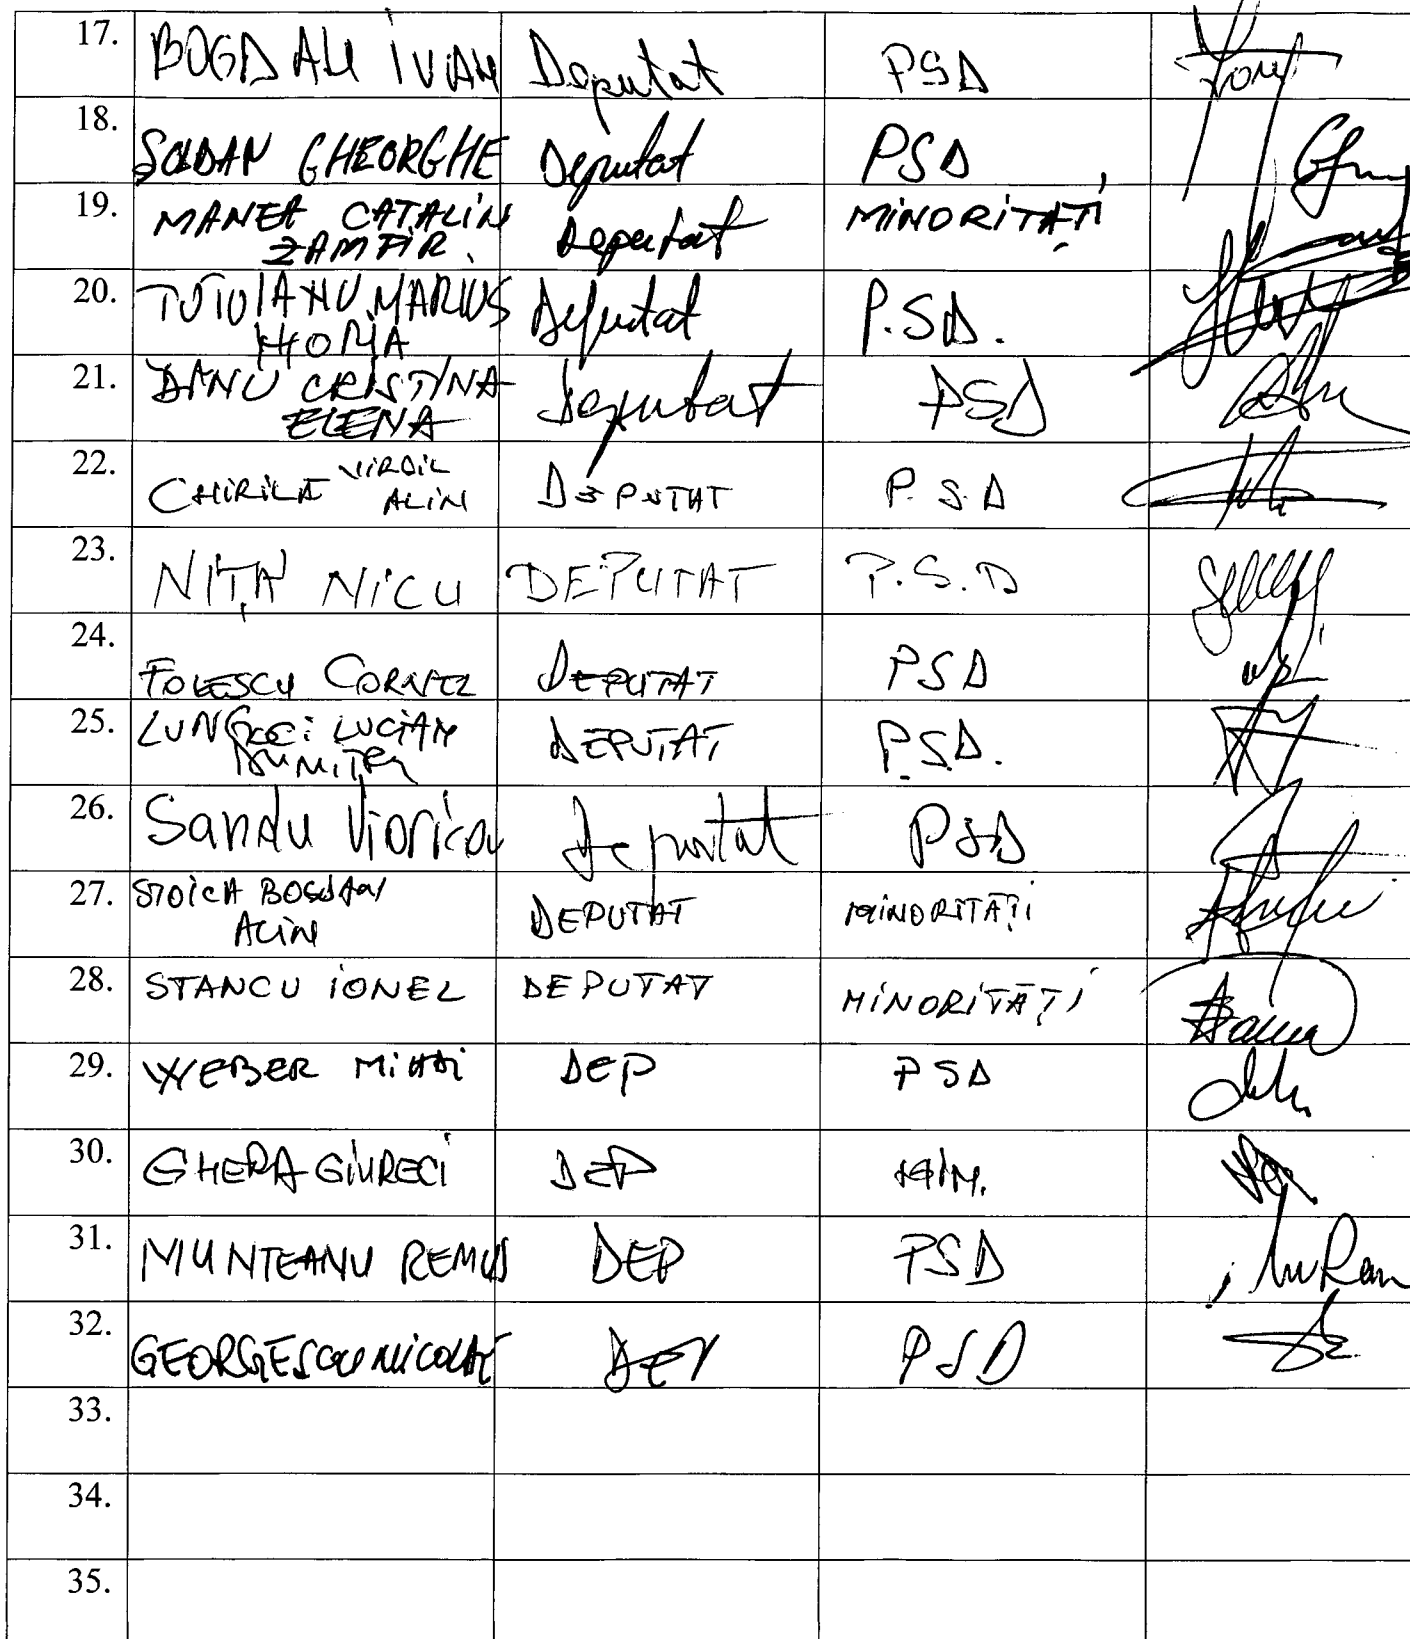 17. BOGDAN IVAN Deputat PSD
18. SOLDAN GHEORGHE Deputat PSD
19. MANEA CATALIN Deputat MINORITĂȚI
ZAMFIR.
20. TUTUIANU MARIUS Deputat P.S.D.
HORIA
21. DANU CRISTINA Deputat PSD
ELENA
22. CHIRILA VIRGIL DEPUTAT P.S.D
ALIN
23. NIȚA NICU DEPUTAT P.S.D
24. FOLESCU CORNEL DEPUTAT PSD
25. LUCIAN DEPUTAT P.S.D.
DUMITRU
26. Sandu Viorica Deputat PSD
27. STOICA BOGDAN DEPUTAT MINORITĂȚI
ALIN
28. STANCU IONEL DEPUTAT MINORITĂȚI
29. WEBER MIHAI DEP PSD
30. GHERA GIURECI DEP MIN.
31. MUNTEANU REMUS DEP PSD
32. GEORGESCU NICOLAE DEP PSD
33.
34.
35.